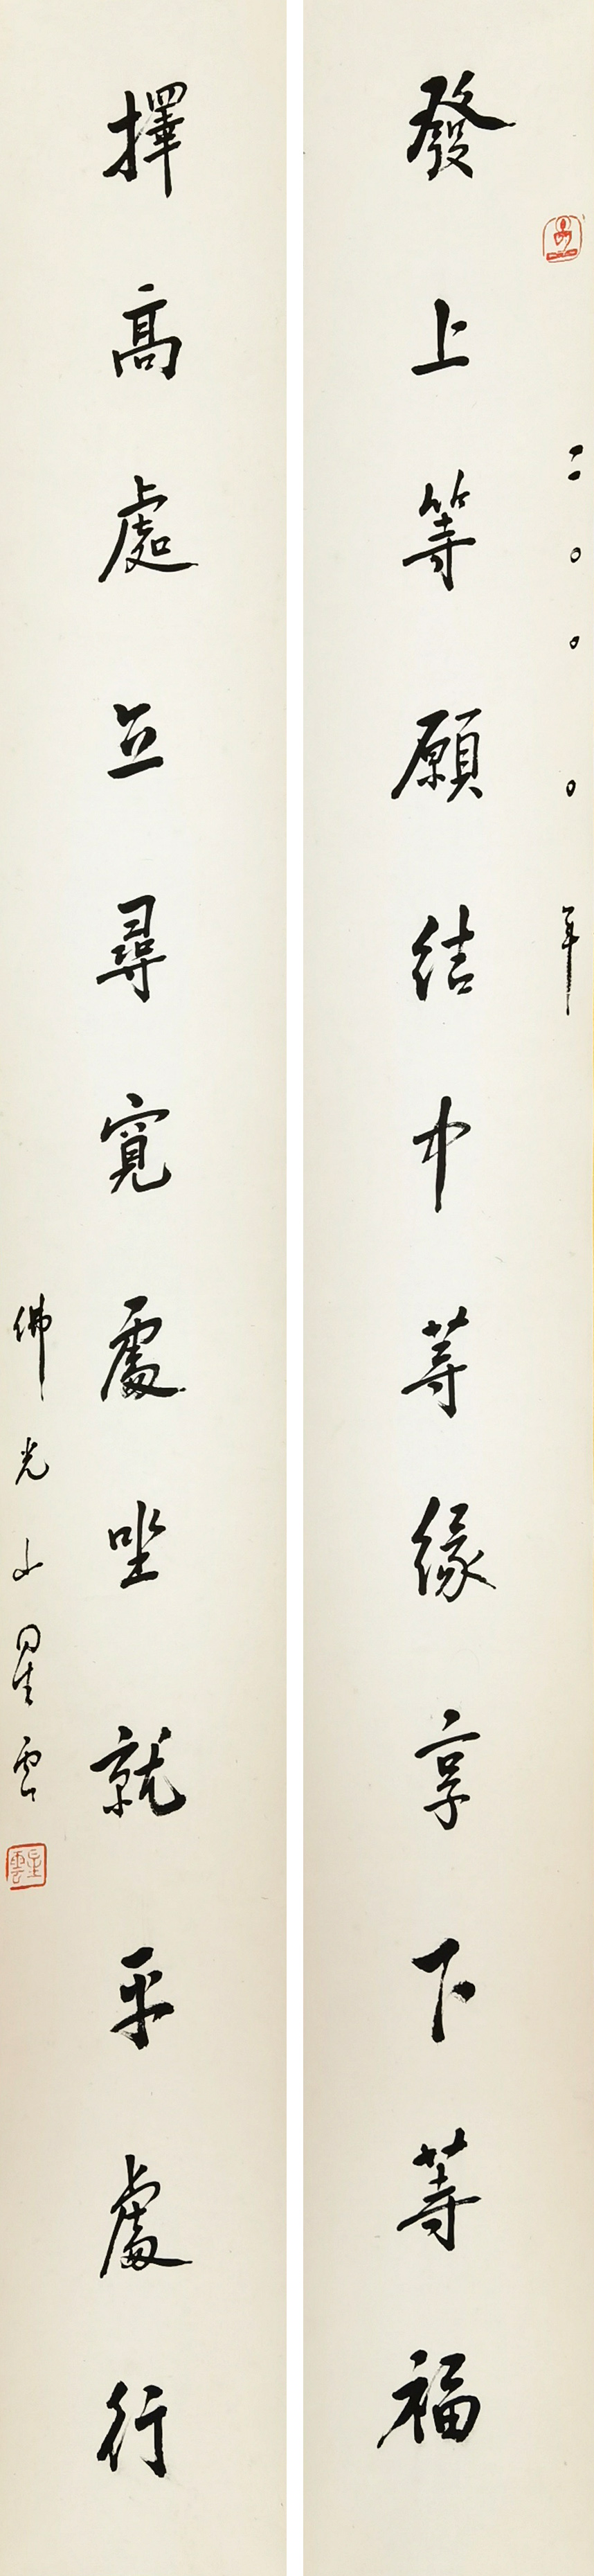 二〇〇〇年
發上等願結中等緣享下等福
擇高處立尋寬處坐就平處行
佛光山星雲
星雲